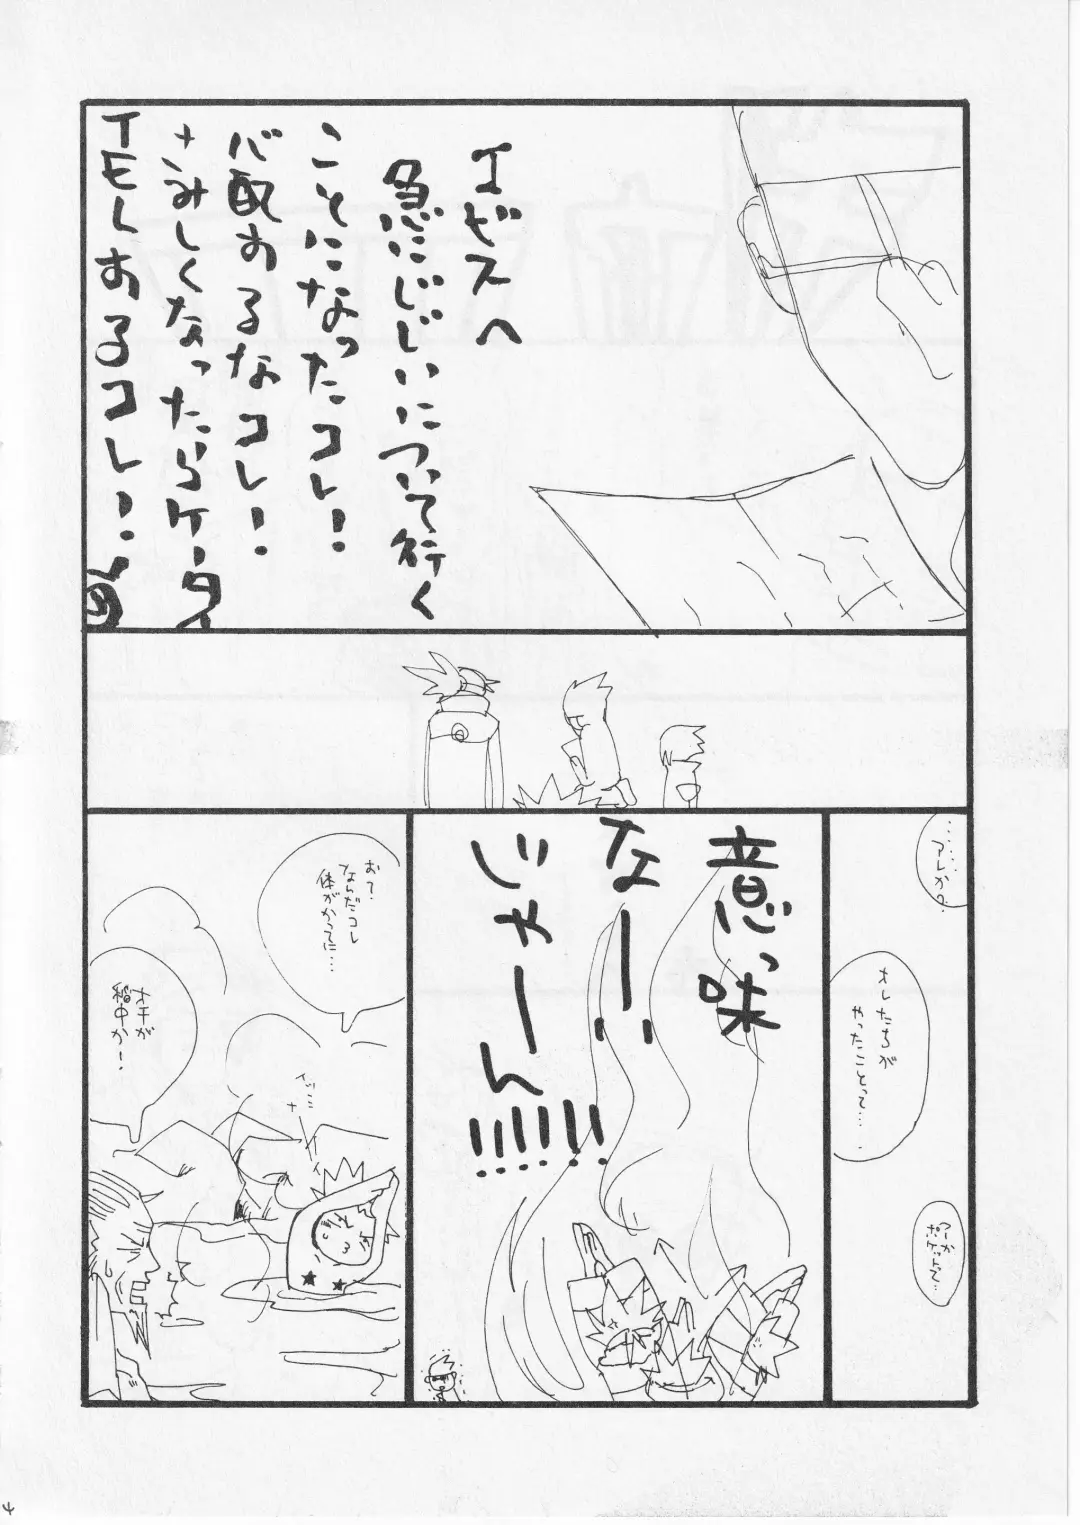 エビスへ
急にじじいについて行く
ことになったコレ!
心配するなコレ!
さみしくなったらケータイ
TELするコレ!
……アレか?
オレたちが
やったことって…
意っ味
なー!!
じゃーん!!!!!!
おて?
なんだコレ
体がかってに…
オチが
稲中か!
4